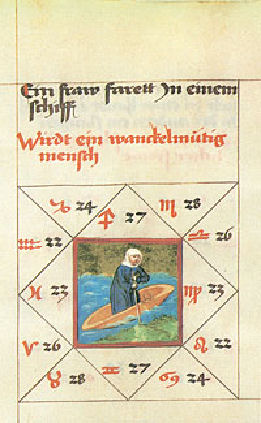 Ein fraw farett In einem
schiff
Wirdt ein wanckelmütig
mensch
♑ 24 ♐ 27 ♏ 28
♒ 22 ♎ 26
♓ 23 ♍ 23
♈ 26 ♌ 22
♉ 28 ♊ 27 ♋ 24